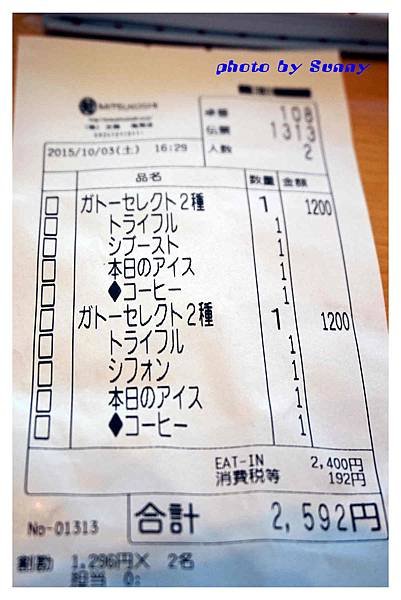 photo by Sunny
MITSUKOSHI
卓番 108
伝票 1313
人数 2
2015/10/03(土) 16:29
品名 数量 金額
ガトーセレクト2種 1 1200
トライフル 1
シブースト 1
本日のアイス 1
◆コーヒー 1
ガトーセレクト2種 1 1200
トライフル 1
シフォン 1
本日のアイス 1
◆コーヒー 1
EAT-IN 2,400円
消費税等 192円
No-01313 合計 2,592円
割勘 1,296円× 2名
担当 0: